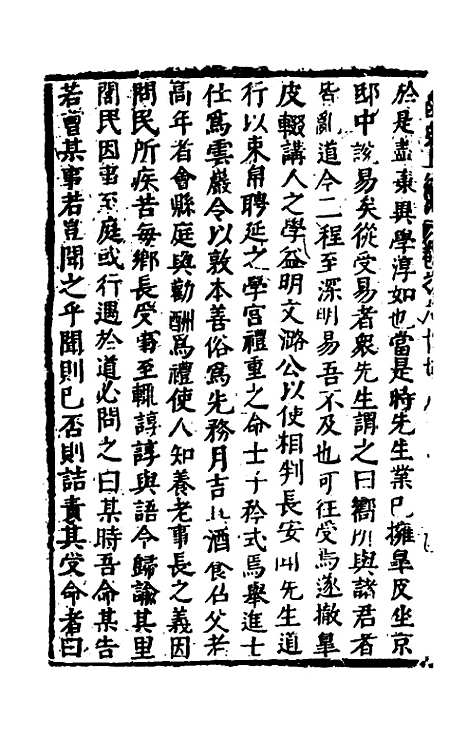 於是盡棄異學淳如也當是時先生業已擁皐皮坐京
邸中說易矣從受易者衆先生謂之曰嚮所與諸君者
皆亂道今二程至深明易吾不及也可往受焉遂撤皐
皮輟講人之學益明文潞公以使相判長安聞先生道
行以束帛聘延之學宮禮重之命士子矜式焉舉進士
仕爲雲巖令以敦本善俗爲先務月吉具酒食佔父老
高年者會縣庭與勸酬爲禮使人知養老事長之義因
問民所疾苦每鄉長受事至輒諄諄與語令歸諭其里
閭民因事至庭或行遇於道必問之曰某時吾命某告
若曹某事若豈聞之乎聞則已否則詰責其受命者曰